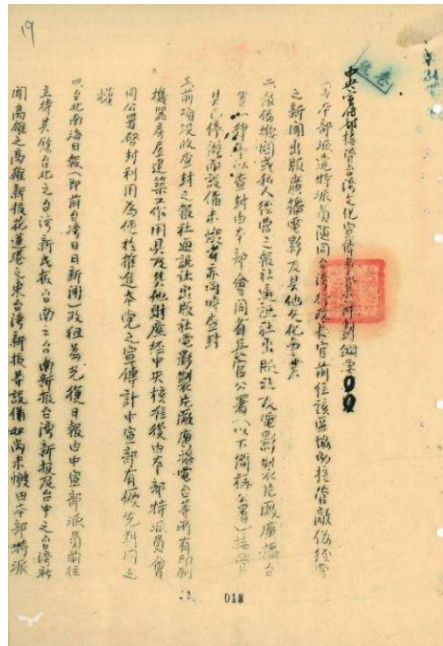 19
卷號
中央宣傳部接管台灣文化宣傳事業計劃綱要
一、本部派遣特派員隨同台灣行政長官前往該區協助接管敵偽經營
之新聞出版廣播電影及其他文化事業
二、敵偽機關或私人經營之報社通訊社出版社及電影製片廠廣播台
等一律予以查封由本部會同省長官公署（以下簡稱公署）接管
其已停辦而設備未燬者亦同時查封
三、前項沒收查封之報社通訊社出版社電影製片廠廣播電台等所有印刷
機器房屋建築工作用具及其他財產經中央核准後由本部特派員會
同公署啟封利用為便於推進本党之宣傳計中宣部有優先利用之
權
四、台北南海日報（即前台灣日日新聞）改組為光復日報由中宣部派員前往
主持其餘台北之台灣新民報台南之台南新報台灣新報及台中之台灣新
聞高雄之高雄新報花蓮港之東台灣新報等設備如尚未燬由本部特派
018